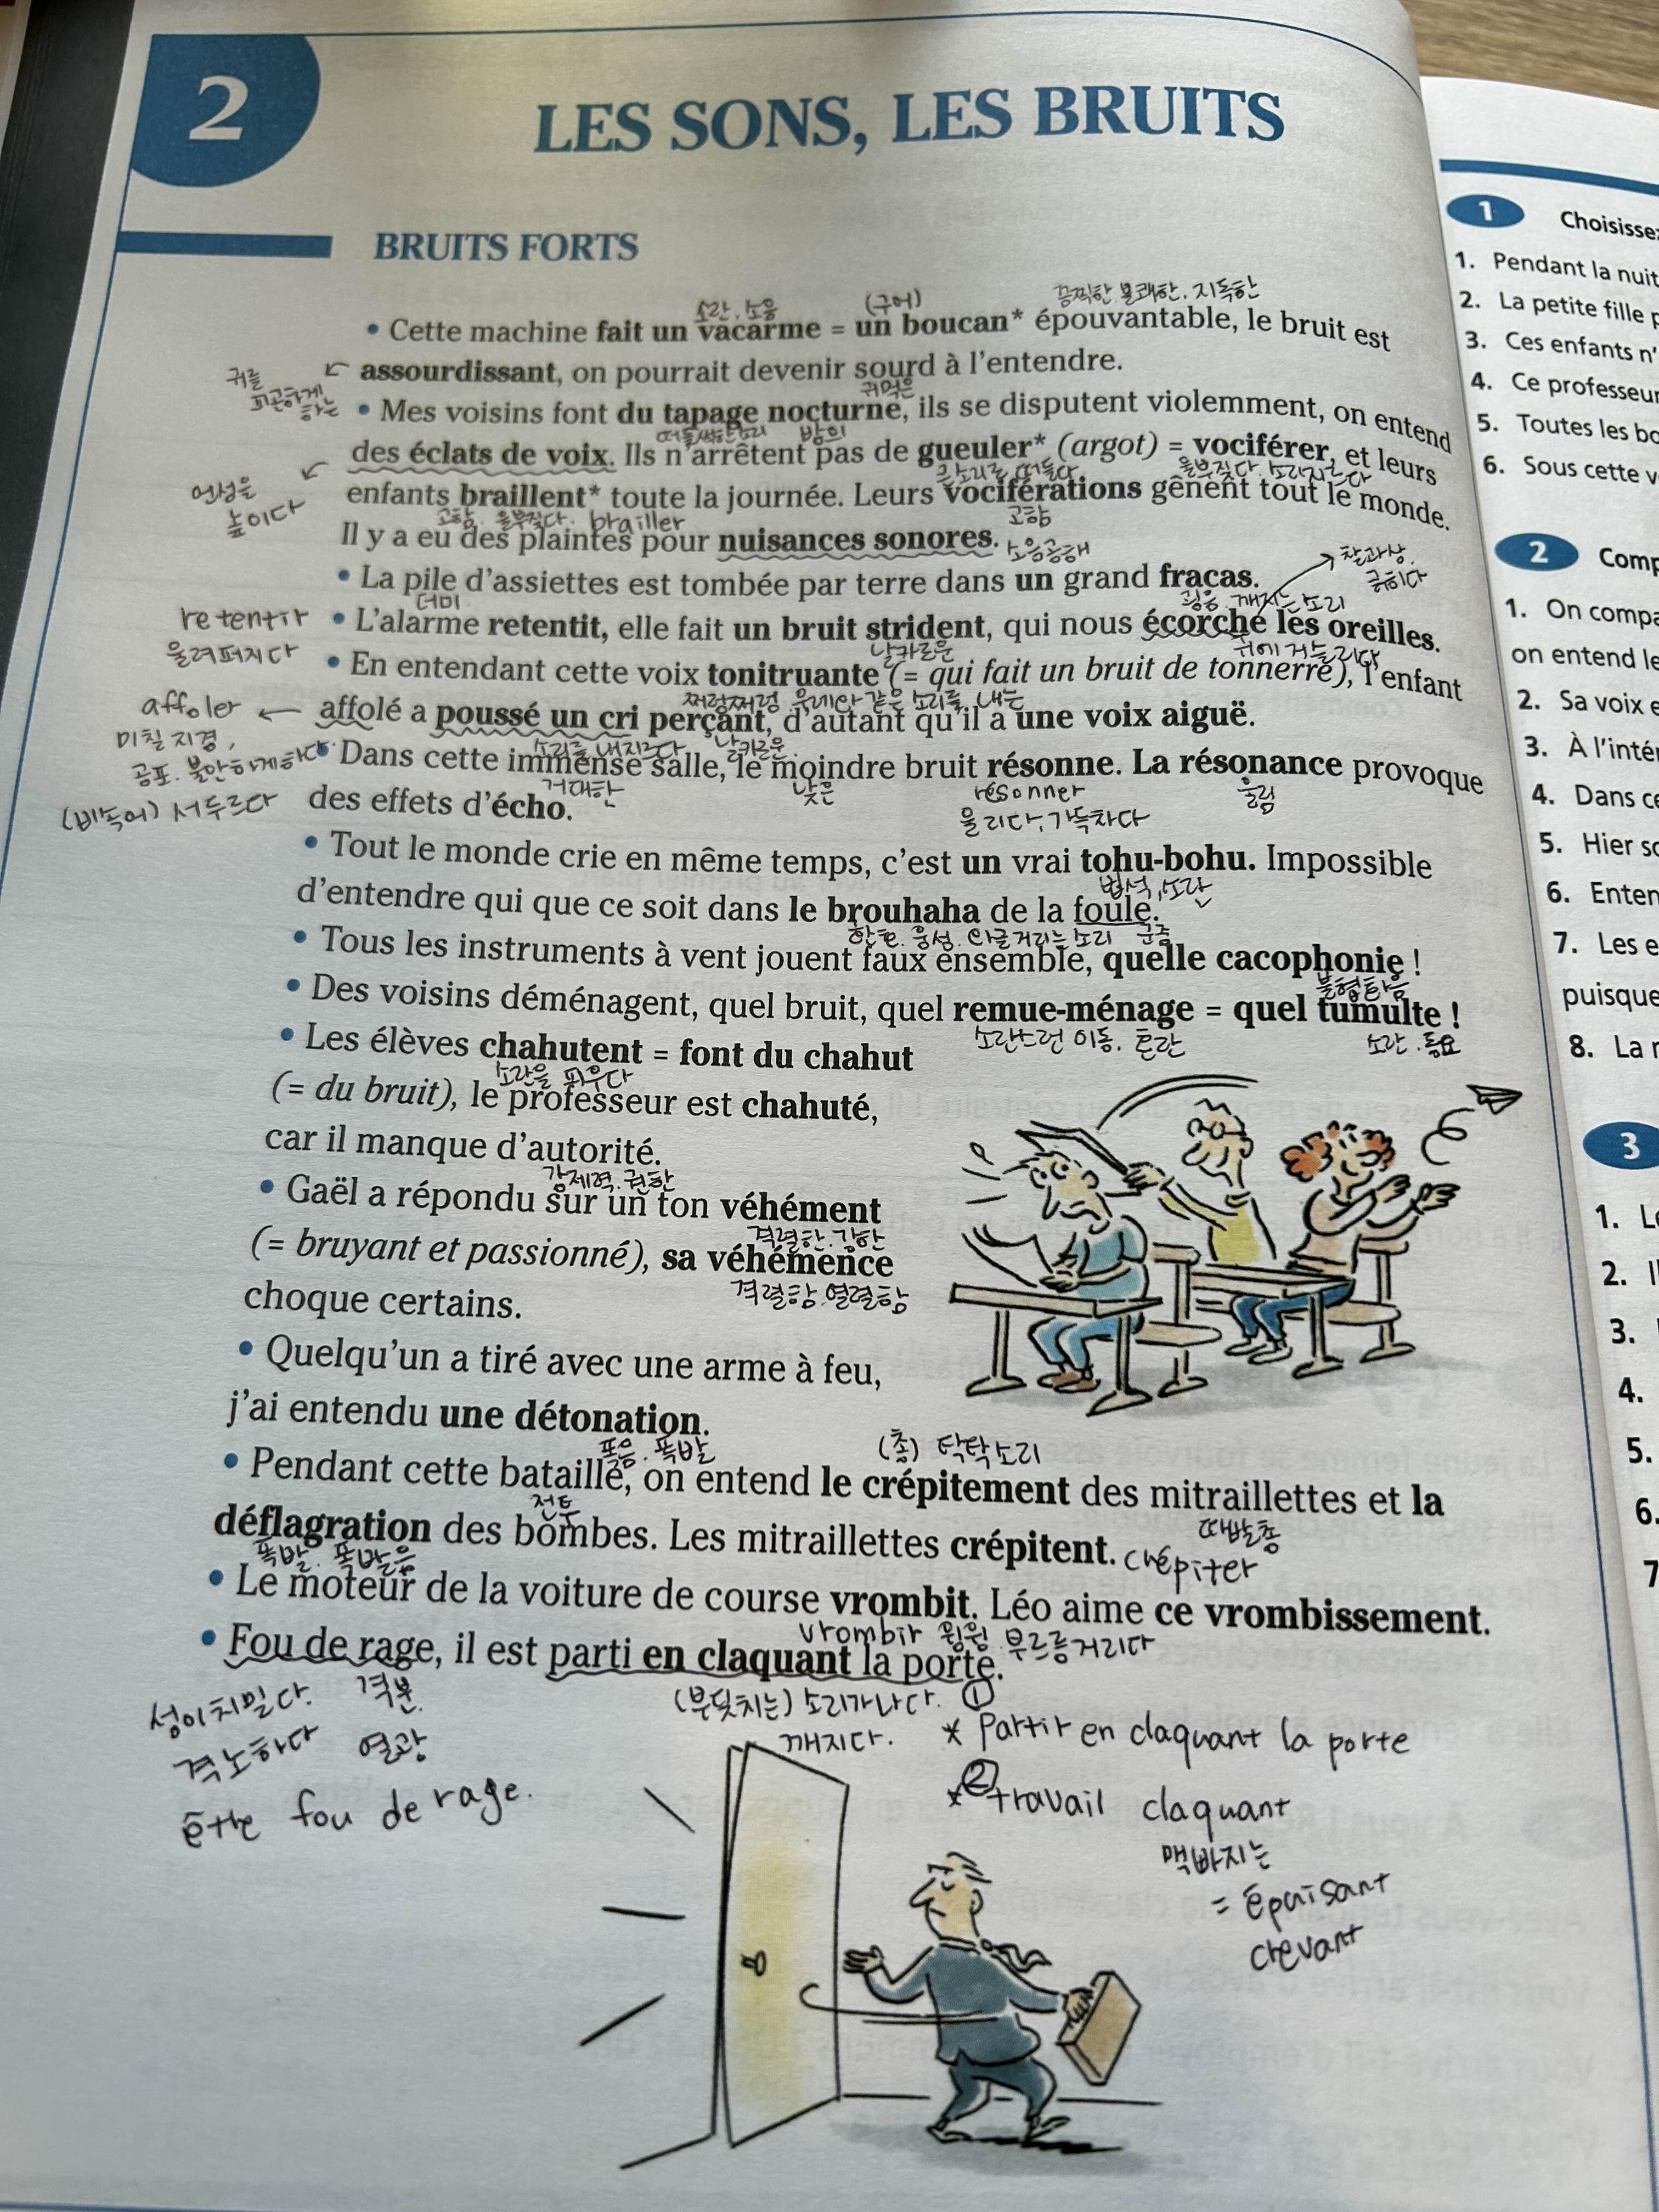 2
LES SONS, LES BRUITS
BRUITS FORTS
소란. 소음
(구어)
끔찍한 불쾌한. 지독한
• Cette machine fait un vacarme = un boucan* épouvantable, le bruit est
귀를
피곤하게
하는
assourdissant, on pourrait devenir sourd à l'entendre.
귀먹은
• Mes voisins font du tapage nocturne, ils se disputent violemment, on entend
떠들썩한 소리
밤의
des éclats de voix. Ils n'arrêtent pas de gueuler* (argot) = vociférer, et leurs
언성을
높이다
큰소리로 떠들다
울부짖다. 소리지르다
enfants braillent* toute la journée. Leurs vociférations gênent tout le monde.
고함. 울부짖다. brailler
고함
Il y a eu des plaintes pour nuisances sonores.
소음공해
• La pile d'assiettes est tombée par terre dans un grand fracas.
더미
굉음. 깨지는 소리
찰과상.
긁히다
retentir
울려퍼지다
• L'alarme retentit, elle fait un bruit strident, qui nous écorche les oreilles.
날카로운
귀에 거슬리다
• En entendant cette voix tonitruante (= qui fait un bruit de tonnerre), l'enfant
쩌렁쩌렁 우레와 같은 소리를 내는
affoler
미칠 지경,
공포. 불안하게하다
(비속어) 서두르다
affolé a poussé un cri perçant, d'autant qu'il a une voix aiguë.
소리를 내지르다
날카로운
• Dans cette immense salle, le moindre bruit résonne. La résonance provoque
거대한
낮은
résonner
울리다, 가득차다
울림
des effets d'écho.
• Tout le monde crie en même temps, c'est un vrai tohu-bohu. Impossible
법석, 소란
d'entendre qui que ce soit dans le brouhaha de la foule.
웅성. 와글거리는 소리
군중
• Tous les instruments à vent jouent faux ensemble, quelle cacophonie !
불협화음
• Des voisins déménagent, quel bruit, quel remue-ménage = quel tumulte !
소란스런 이동. 혼란
소란. 동요
• Les élèves chahutent = font du chahut
소란을 피우다
(= du bruit), le professeur est chahuté,
car il manque d'autorité.
강제력. 권한
• Gaël a répondu sur un ton véhément
격렬한. 강한
(= bruyant et passionné), sa véhémence
격렬함. 열렬함
choque certains.
• Quelqu'un a tiré avec une arme à feu,
j'ai entendu une détonation.
폭음. 폭발
(총) 탁탁소리
• Pendant cette bataille, on entend le crépitement des mitraillettes et la
전투
따발총
déflagration des bombes. Les mitraillettes crépitent.
폭발. 폭발음
crépiter
• Le moteur de la voiture de course vrombit. Léo aime ce vrombissement.
vrombir 윙윙. 부르릉거리다
• Fou de rage, il est parti en claquant la porte.
성이치밀다. 격분.
격노하다 열광
être fou de rage.
(부딪치는) 소리가나다. ①
깨지다.
* Partir en claquant la porte
* ② travail claquant
맥빠지는
= épuisant
crevant
1 Choisisse
1. Pendant la nuit
2. La petite fille p
3. Ces enfants n'
4. Ce professeur
5. Toutes les bo
6. Sous cette v
2 Comp
1. On compa
on entend le
2. Sa voix e
3. À l'inté
4. Dans ce
5. Hier so
6. Enten
7. Les e
puisque
8. La r
3
1. Le
2. Il
3.
4.
5.
6.
7